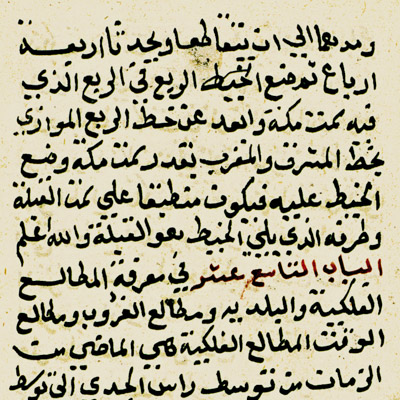 ومدهما الي ان يتقاطعا ويحدثا اربعة
ارباع ثم ضع الخيط الربع في الربع الذي
فيه سمت مكة وابعد عن خط الربع الموازي
لخط المشرق والمغرب بقدر سمت مكة وضع
الخيط عليه فيكون منطبقا علي سمت القبلة
وطرفه الذي يلي المحيط نحو القبلة والله اعلم
الباب التاسع عشر في معرفة المطالع
الفلكية والبلديه ومطالع الغروب ومطالع
الوقت المطالع الفلكية هي الماضي من
الزمان من توسط راس الجدي الي توسط